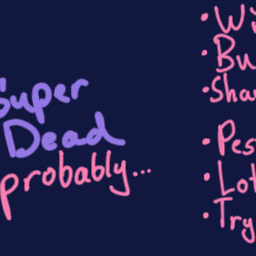 Super
Dead
probably...
• Bu
• Sha
• Pes
• Lot
• Try